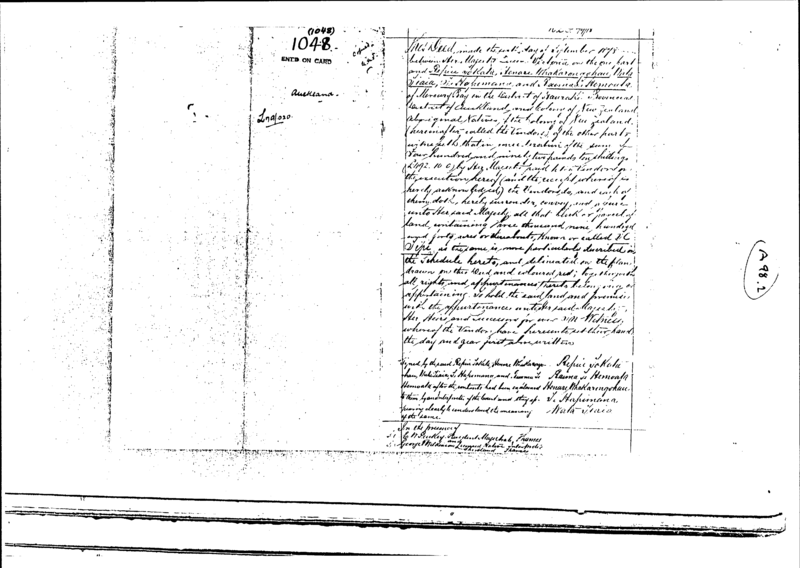 (1048)
1048
ENTD ON CARD
Auckland
(A 98.2)
This Deed, made the day of September 1878
between Her Majesty Queen Victoria on the one part
and Repiu Tokata, Honare Whakarongohau, Wata
Tiaia, Te Hapimana, and Te Hemoata
of Mercury Bay in the District of Hauraki Provincial
District of Auckland, and Colony of New Zealand
Aboriginal Natives of the Colony of New Zealand
(hereinafter called the Vendors) of the other part
witnesseth that in consideration of the sum of
Four hundred and ninety two pounds ten shillings
(£492. 10. 0) by Her Majesty paid to the Vendors on
the execution hereof (and the receipt whereof is
hereby acknowledged) the Vendors do, and each of
them doth, hereby surrender, convey, and assure
unto Her said Majesty all that block or parcel of
land, containing three thousand nine hundred
and forty acres or thereabouts, known or called
as the same is more particularly described in
the Schedule hereto, and delineated on the plan
drawn on this Deed and coloured red; together with
all rights and appurtenances thereto belonging or
appertaining. To hold the said land and premises
with the appurtenances unto Her said Majesty
Her Heirs and Successors for ever In Witness
whereof the Vendors have hereunto set their hands
the day and year first above written
Signed by the said Repiu Tokata, Honare Whakarongo
hau, Wata Tiaia, Te Hapimana, and Te
Hemoata after the contents had been explained
to them by an Interpreter of the Court and they ap-
pearing clearly to understand the meaning
of the same
Repiu Tokata
Te Hemoata
Honare Whakarongohau
Te Hapimana
Wata Tiaia
In the presence of
Resident Magistrate, Thames
and
George Wilkinson Licensed Native Interpreter
Thames